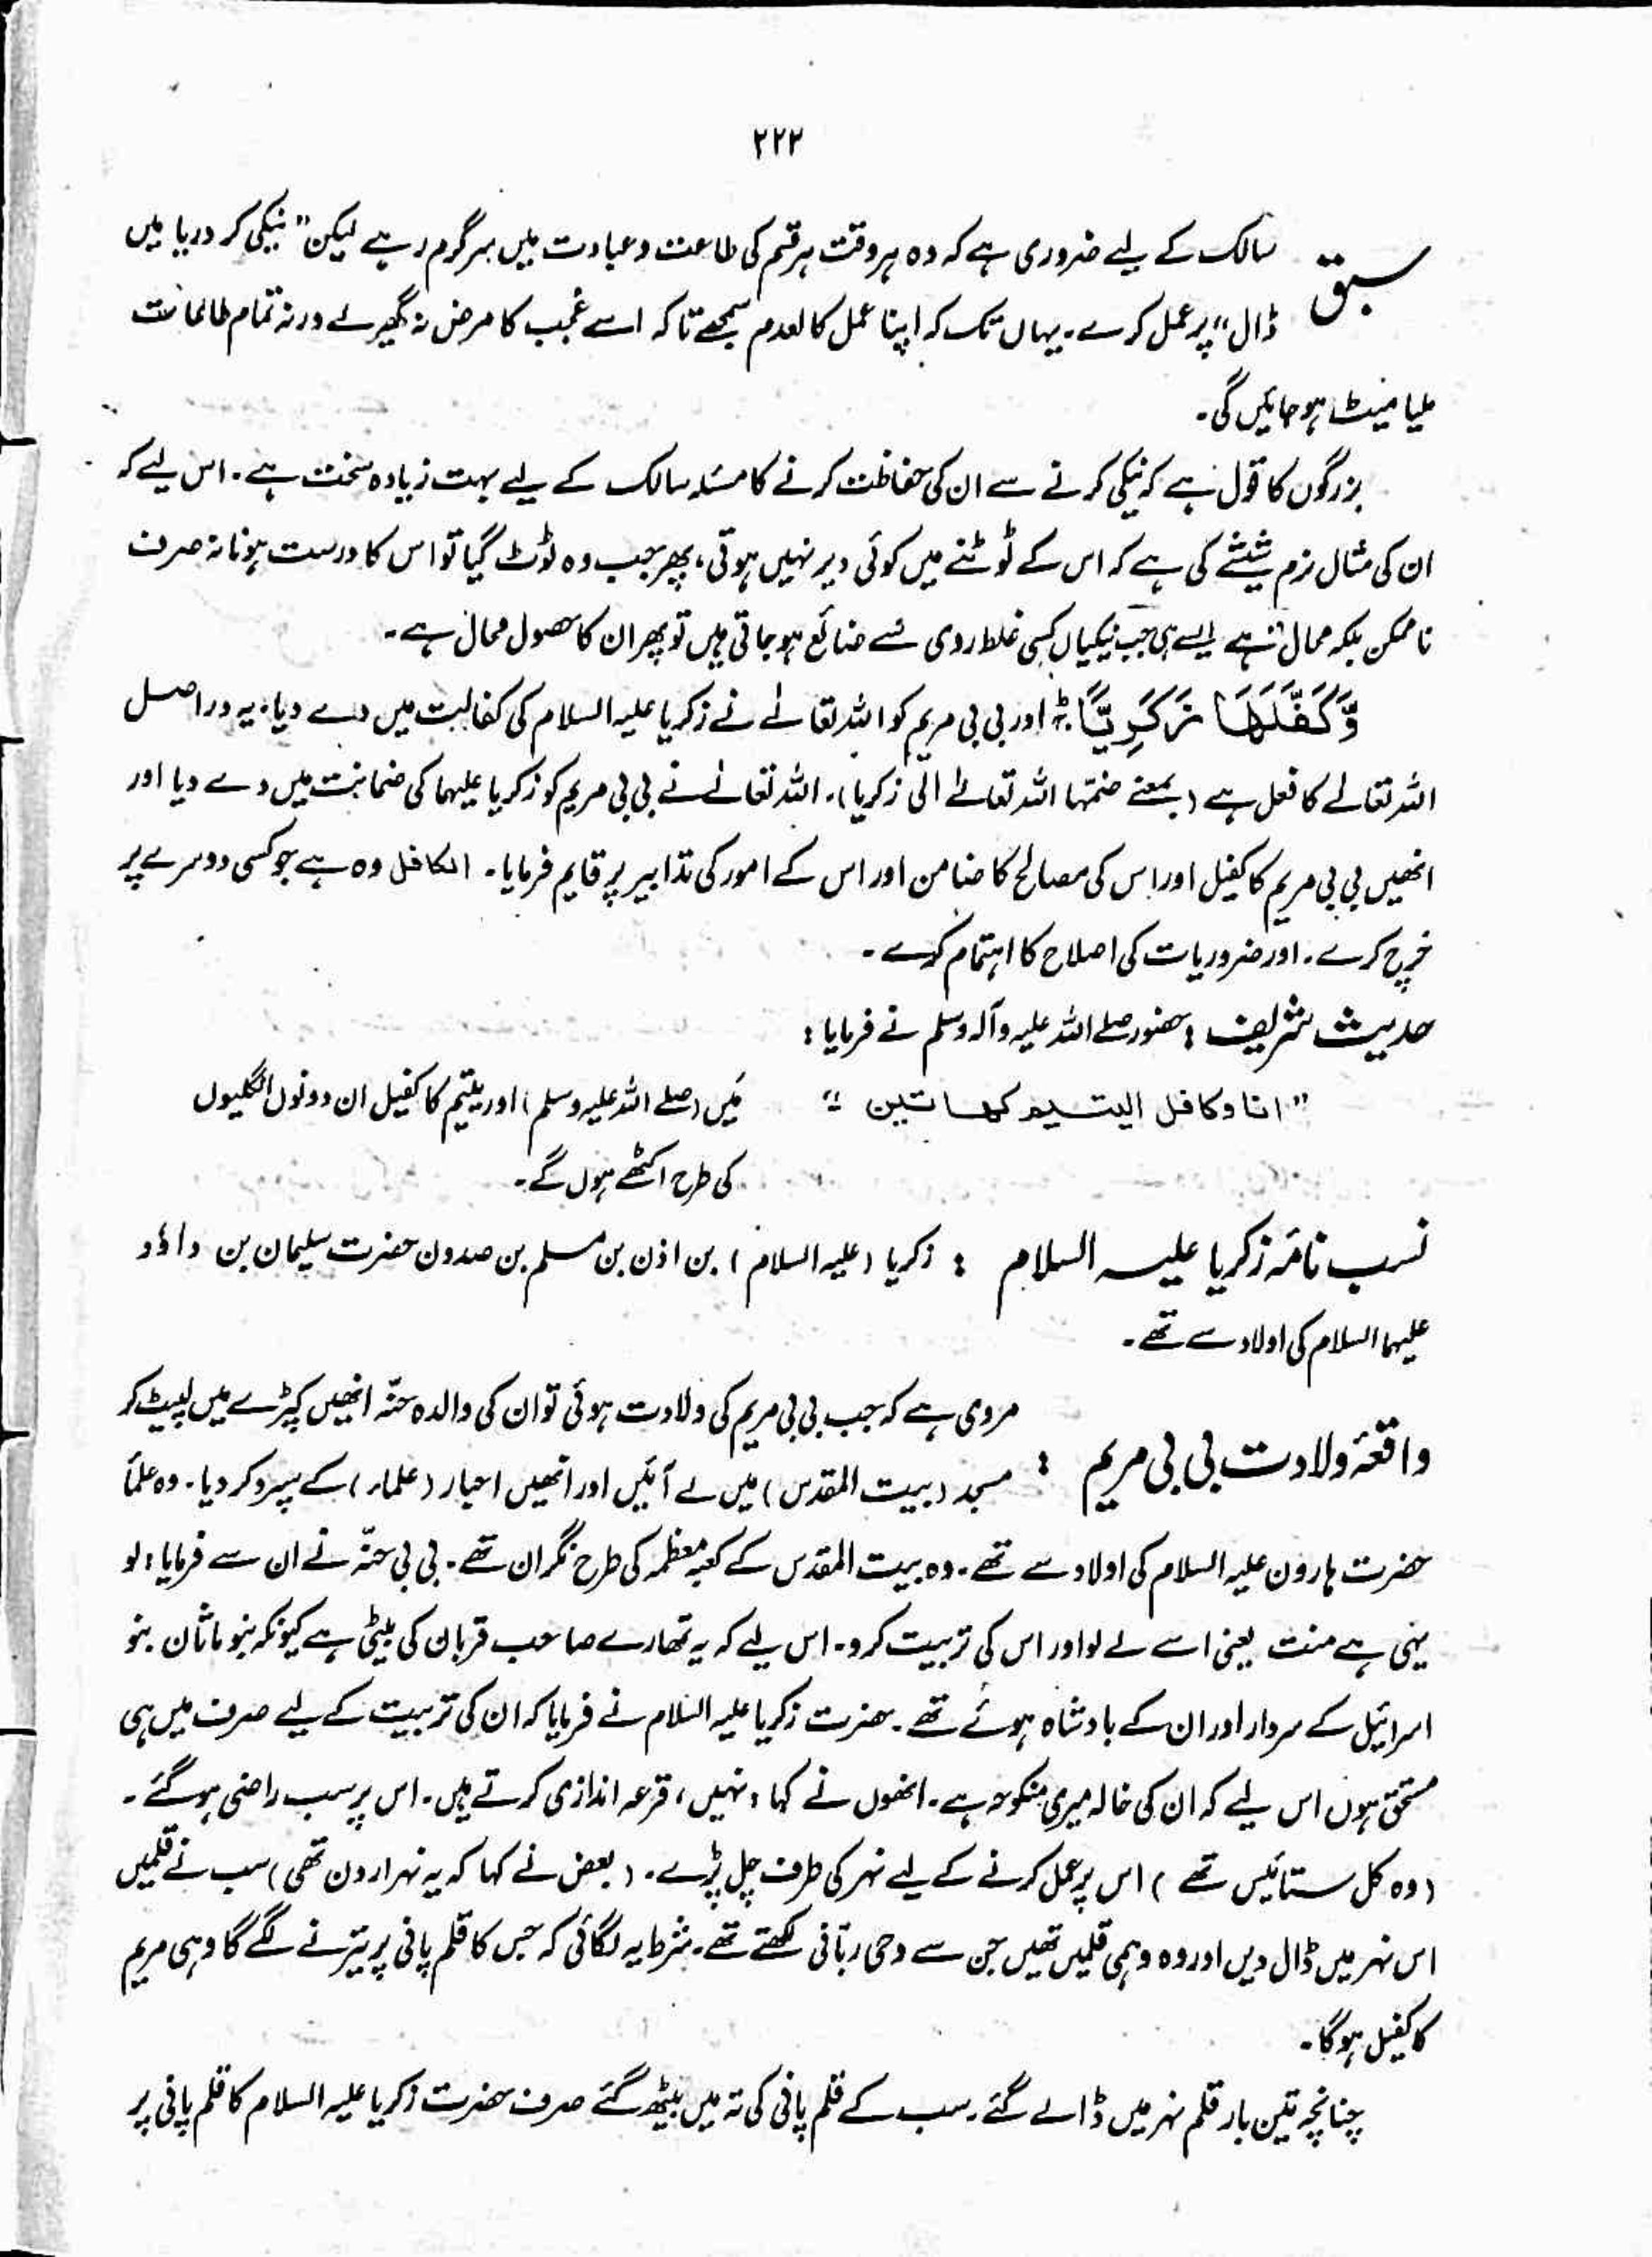 ۲۲۲
سبق سالک کے لیے ضروری ہے کہ وہ ہر وقت ہر قسم کی طاعت و عبادت میں سرگرم رہے لیکن "نیکی کر دریا میں
ڈال" پر عمل کرے۔ یہاں تک کہ اپنا عمل کالعدم سمجھے تاکہ اسے عُجب کا مرض نہ گھیر لے ورنہ تمام طاعات
ملیامیٹ ہو جائیں گی۔
بزرگوں کا قول ہے کہ نیکی کرنے سے ان کی حفاظت کرنے کا مسئلہ سالک کے لیے بہت زیادہ سخت ہے۔ اس لیے کہ
ان کی مثال نرم شیشے کی ہے کہ اس کے ٹوٹنے میں کوئی دیر نہیں ہوتی، پھر جب وہ ٹوٹ گیا تو اس کا درست ہونا نہ صرف
ناممکن بلکہ محال ہے ایسے ہی جب نیکیاں کسی غلط روی سے ضائع ہو جاتی ہیں تو پھر ان کا حصول محال ہے۔
وَّكَفَّلَهَا زَكَرِيَّا ؕ اور بی بی مریم کو اللہ تعالیٰ نے زکریا علیہ السلام کی کفالت میں دے دیا۔ یہ دراصل
اللہ تعالےٰ کا فعل ہے (بمعنے ضمّہا اللہ تعالےٰ الیٰ زکریا)۔ اللہ تعالےٰ نے بی بی مریم کو زکریا علیہما کی ضمانت میں دے دیا اور
انھیں بی بی مریم کا کفیل اور اس کی مصالح کا ضامن اور اس کے امور کی تدابیر پر قایم فرمایا۔ الکافل وہ ہے جو کسی دوسرے پر
خرچ کرے۔ اور ضروریات کی اصلاح کا اہتمام کرے۔
حدیث شریف : حضور صلے اللہ علیہ وآلہ وسلم نے فرمایا :
"انا وکافل الیتیم کھاتین" مَیں (صلے اللہ علیہ وسلم) اور یتیم کا کفیل ان دونوں انگلیوں
کی طرح اکٹھے ہوں گے۔
نسب نامۂ زکریا علیہ السلام : زکریا (علیہ السلام) بن اذن بن مسلم بن صدون حضرت سلیمان بن داؤد
علیہما السلام کی اولاد سے تھے۔
واقعۂ ولادت بی بی مریم : مروی ہے کہ جب بی بی مریم کی ولادت ہوئی تو ان کی والدہ حنّہ انھیں کپڑے میں لپیٹ کر
مسجد (بیت المقدس) میں لے آئیں اور انھیں احبار (علماء) کے سپرد کر دیا۔ وہ علماً
حضرت ہارون علیہ السلام کی اولاد سے تھے۔ وہ بیت المقدس کے کعبہ معظمہ کی طرح نگران تھے۔ بی بی حنّہ نے ان سے فرمایا: لو
یہی ہے منت یعنی اسے لے لو اور اس کی تربیت کرو۔ اس لیے کہ یہ تمھارے صاحب قربان کی بیٹی ہے کیونکہ بنو ماثان بنو
اسرائیل کے سردار اور ان کے بادشاہ ہوئے تھے۔ حضرت زکریا علیہ السلام نے فرمایا کہ ان کی تربیت کے لیے صرف میں ہی
مستحق ہوں اس لیے کہ ان کی خالہ میری منکوحہ ہے۔ انھوں نے کہا: نہیں، قرعہ اندازی کرتے ہیں۔ اس پر سب راضی ہو گئے۔
(وہ کل ستائیس تھے) اس پر عمل کرنے کے لیے نہر کی طرف چل پڑے۔ (بعض نے کہا کہ یہ نہر اردن تھی) سب نے قلمیں
اس نہر میں ڈال دیں اور وہ وہی قلمیں تھیں جن سے وحی ربّانی لکھتے تھے۔ شرط یہ لگائی کہ جس کا قلم پانی پر تیرنے لگے گا وہی مریم
کا کفیل ہوگا۔
چنانچہ تین بار قلم نہر میں ڈالے گئے۔ سب کے قلم پانی کی تہ میں بیٹھ گئے صرف حضرت زکریا علیہ السلام کا قلم پانی پر